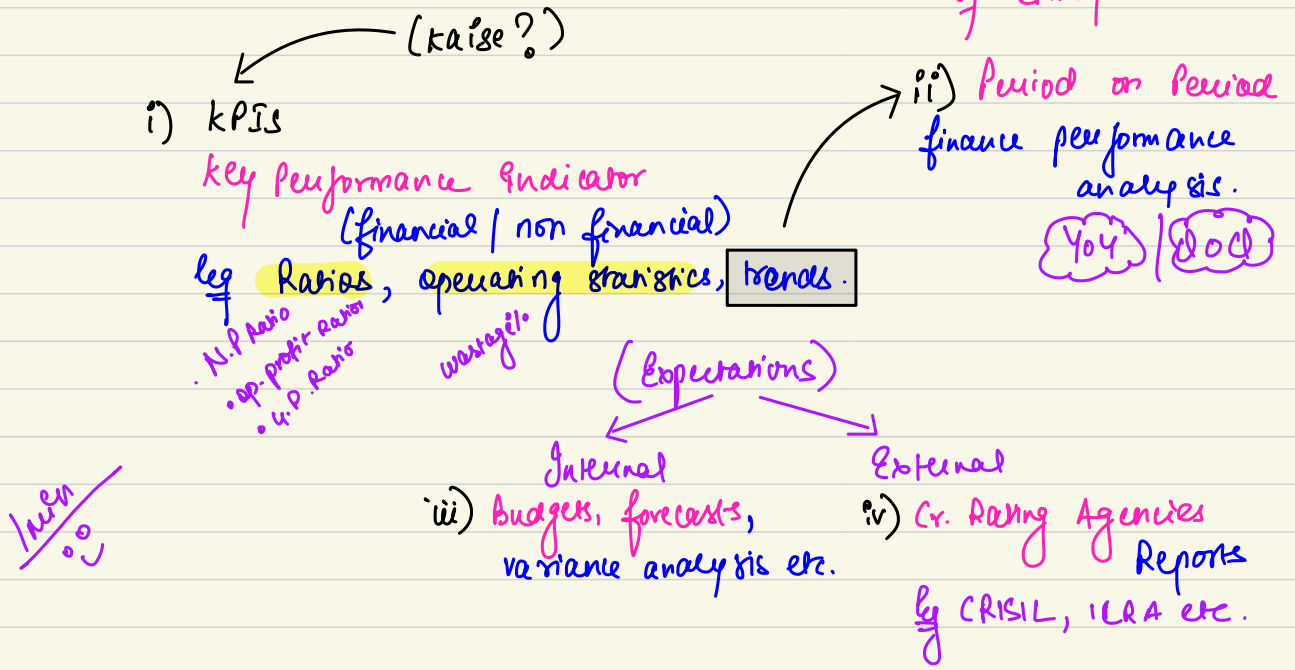 (kaise?)
i) KPIs
Key Performance Indicator
(financial / non financial)
eg Ratios, operating statistics, trends.
• N.P Ratio
• op. profit Ratio
• G.P. Ratio
wastage%
ii) Period on Period
finance performance
analysis.
YoY / QoQ
(Expectations)
Internal
iii) Budgets, forecasts,
variance analysis etc.
External
iv) Cr. Rating Agencies
Reports
eg CRISIL, ICRA etc.